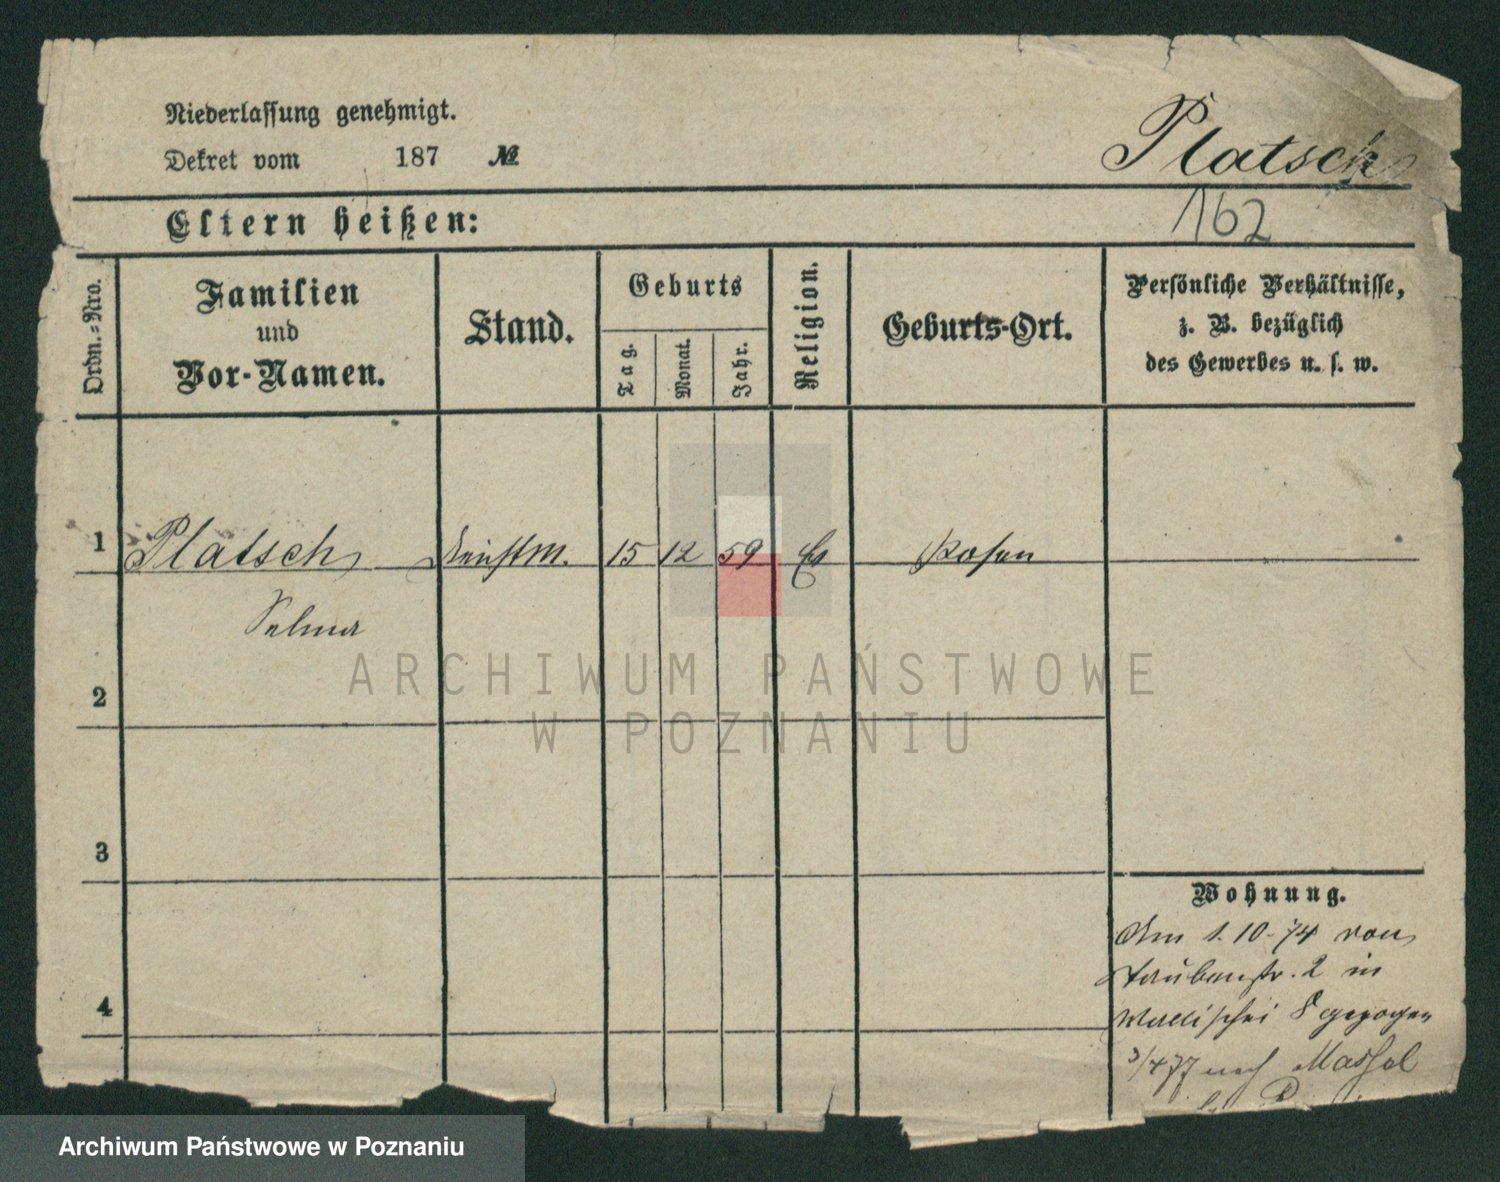 Niederlassung genehmigt.
Dekret vom 187 №
Platsch
Eltern heißen:
162
Ordn.=Nro.
Familien
und
Vor-Namen.
Stand.
Geburts
Tag.
Monat.
Jahr.
Religion.
Geburts-Ort.
Persönliche Verhältnisse,
z. B. bezüglich
des Gewerbes u. s. w.
1 Platsch Dienstm. 15 12 59 Ev Posen
Selma
2
3
4
Wohnung.
Am 1. 10. 74 von
Taubenstr. 2 in
Wallischei 8 gezogen
3/4 77 nach
ARCHIWUM PAŃSTWOWE
W POZNANIU
Archiwum Państwowe w Poznaniu